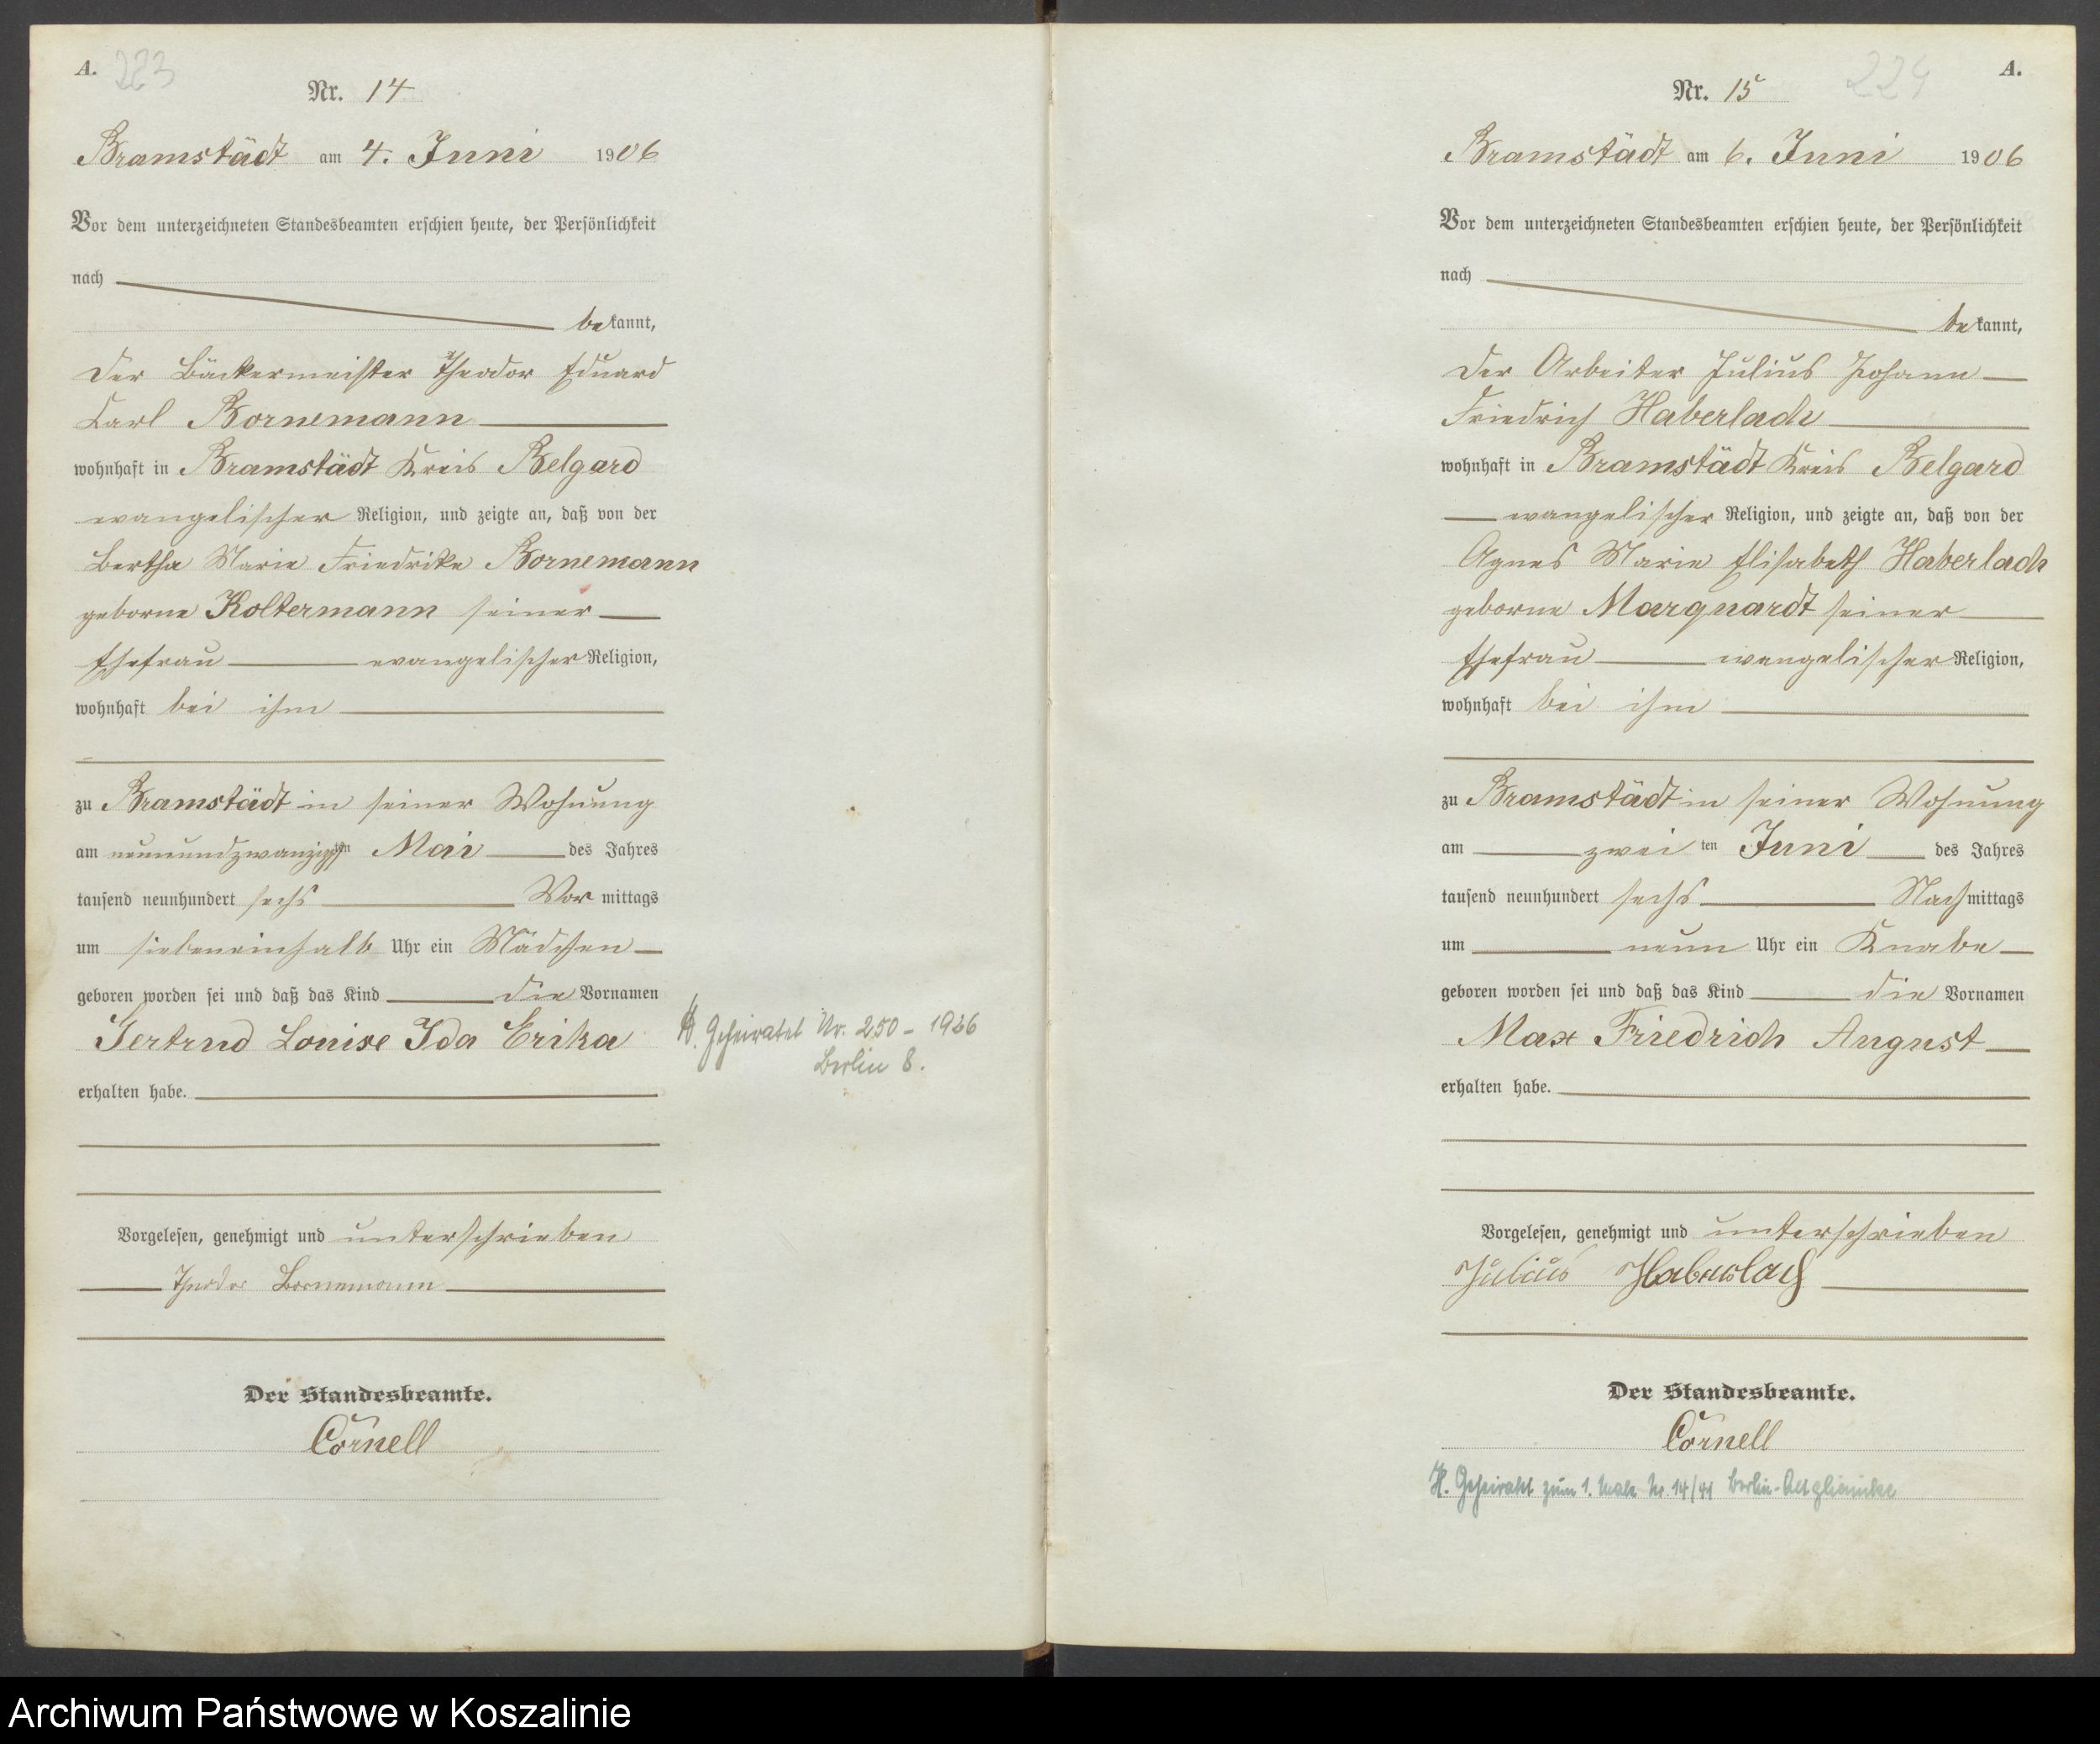 A. 223
Nr. 14
Bramstädt am 4. Juni 1906
Vor dem unterzeichneten Standesbeamten erschien heute, der Persönlichkeit
nach
bekannt,
der Bäckermeister Theodor Eduard
Carl Bornemann
wohnhaft in Bramstädt Kreis Belgard
evangelischer Religion, und zeigte an, daß von der
Bertha Marie Friedrike Bornemann
geborne Koltermann seiner
Ehefrau evangelischer Religion,
wohnhaft bei ihm
zu Bramstädt in seiner Wohnung
am neunundzwanzigsten Mai des Jahres
tausend neunhundert sechs Vor mittags
um siebeneinhalb Uhr ein Mädchen
geboren worden sei und daß das Kind die Vornamen
Gertrud Louise Ida Erika
erhalten habe.
H. Geheiratet Nr. 250 - 1926
Berlin 8.
Vorgelesen, genehmigt und unterschrieben
Theodor Bornemann
Der Standesbeamte.
Cornell
224 A.
Nr. 15
Bramstädt am 6. Juni 1906
Vor dem unterzeichneten Standesbeamten erschien heute, der Persönlichkeit
nach
bekannt,
der Arbeiter Julius Johann
Friedrich Haberlach
wohnhaft in Bramstädt Kreis Belgard
evangelischer Religion, und zeigte an, daß von der
Agnes Marie Elisabeth Haberlach
geborne Marquardt seiner
Ehefrau evangelischer Religion,
wohnhaft bei ihm
zu Bramstädt in seiner Wohnung
am zwei ten Juni des Jahres
tausend neunhundert sechs Nachmittags
um neun Uhr ein Knabe
geboren worden sei und daß das Kind die Vornamen
Max Friedrich August
erhalten habe.
Vorgelesen, genehmigt und unterschrieben
Julius Haberlach
Der Standesbeamte.
Cornell
H. Geheiratet zum 1. Male Nr. 14/41 Berlin-Altglienicke
Archiwum Państwowe w Koszalinie